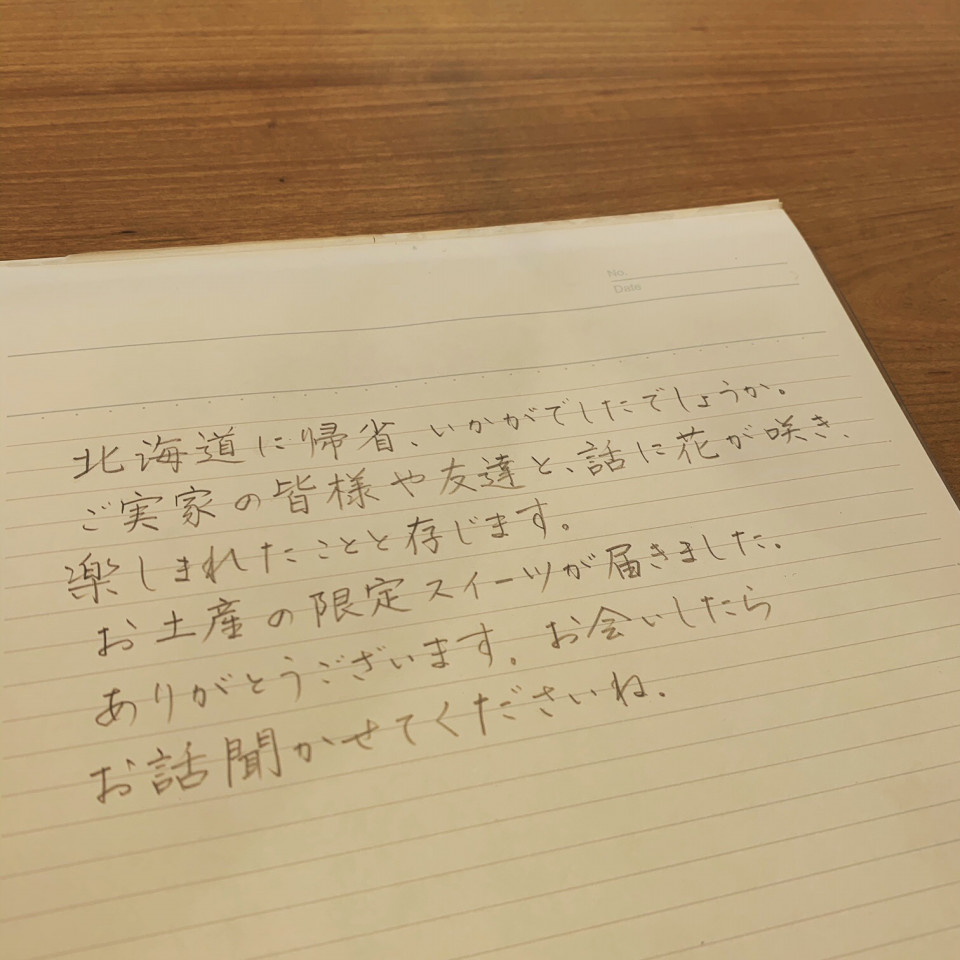 No.
Date
北海道に帰省、いかがでしたでしょうか。
ご実家の皆様や友達と、話に花が咲き、
楽しまれたことと存じます。
お土産の限定スイーツが届きました。
ありがとうございます。お会いしたら
お話聞かせてくださいね。